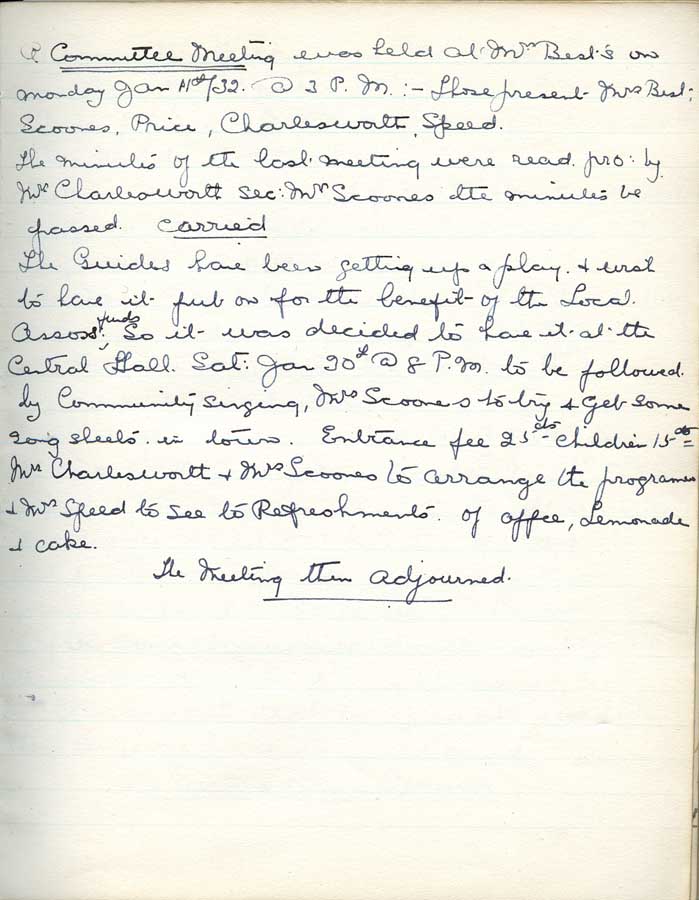 A Committee Meeting was held at Mrs Best's on
Monday Jan 11th/32. @ 3 P.M. :- Those present Mrs Best;
Scoones, Price, Charlesworth, Speed.
The minutes of the last meeting were read. pro: by
Mrs Charlesworth sec: Mrs Scoones the minutes be
passed. carried
The Guides have been getting up a play. & wish
to have it put on for the benefit of the Local.
Assoss: funds, So it was decided to have it at the
Central Hall. Sat: Jan 30th @ 8 P.M. to be followed.
by Community singing, Mrs Scoones to try & get some
song sheets in town. Entrance fee 25cts Children 15cts
Mrs Charlesworth & Mrs Scoones to arrange the programe
& Mrs Speed to see to Refreshments. of offee, Lemonade
& cake.
The Meeting then adjourned.